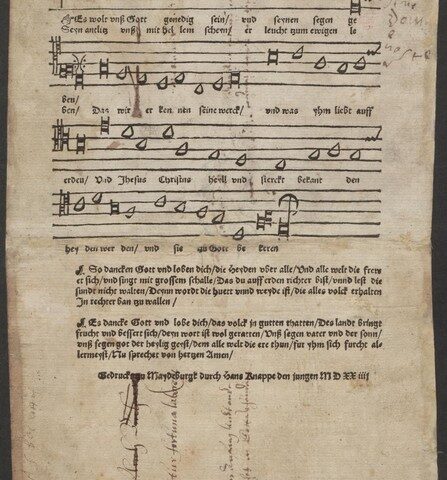 Es wolt vnß Gott genedig sein/ vnd seynen segen ge
Seyn antlitz vnß mit hellem schein/ er leucht zum ewigen le
ben/
ben/ Das wir er ken nen seine werck/ vnd was yhm liebt auff
erden/ Vnd Jhesus Christus heyll vnd sterck bekant den
hey den wer den/ vnd sie zu Gott be keren
So dancken Gott vnd loben dich/ die heyden vber alle/ Vnd alle welt die frewe
et sich/ vnd singt mit grossem schalle/ Das du auff erden richter bist/ vnnd lest die
sundt nicht walten/ Deyn wordt die huett vnnd weyde ist/ die alles volck erhalten
In rechter ban zu wallen/
Es dancke Gott vnd lobe dich/ das volck in gutten thatten/ Des landt bringt
frucht vnd bessert sich/ deyn wort ist wol geratten/ Vnß segen vater vnd der sun/
vnß segen got der heylig geyst/ dem alle welt die ere thun/ fur yhm sich furcht al-
lermeyst/ Nu sprechet von hertzen Amen/
Gedruckt zu Maydeburgk durch Hans Knappe den jungen M D XX iiij